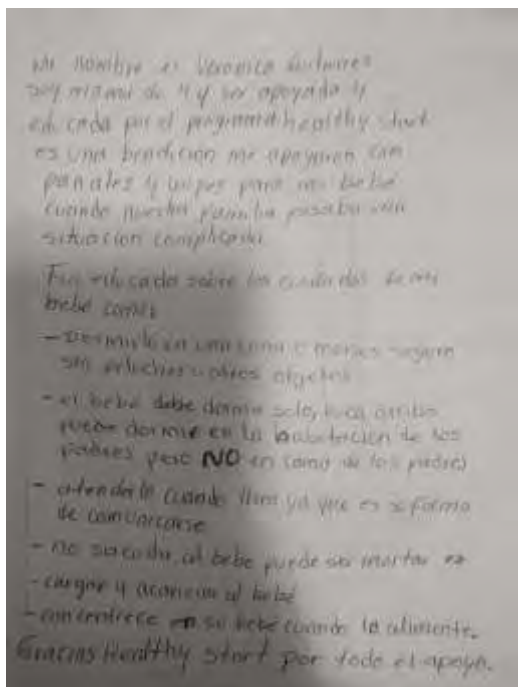 Mi nombre es Veronica Gutierres
soy mama de 4 y ser apoyada y
educada por el programa healthy start
es una bendicion me apoyaron con
pañales y wipes para mi bebe
cuando nuestra familia pasaba una
situacion complicada
Fui educada sobre los cuidados de mi
bebe como
- Dormirlo en una cuna o moises seguro
sin peluches u otros objetos
- el bebe debe dormir solo, boca arriba
puede dormir en la habitacion de los
padres pero NO en cama de los padres
- atenderlo cuando llora ya que es su forma
de comunicarse
- no sacuda al bebe puede ser mortar
- cargar y acariciar al bebé
- concentrece en su bebe cuando lo alimente.
Gracias Healthy start por todo el apoyo.